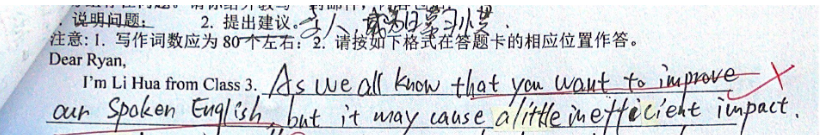 说明问题; 2. 提出建议。
注意: 1. 写作词数应为 80 个左右; 2. 请按如下格式在答题卡的相应位置作答。
Dear Ryan,
I'm Li Hua from Class 3. As we all know that you want to improve
our Spoken English, but it may cause a little inefficient impact.